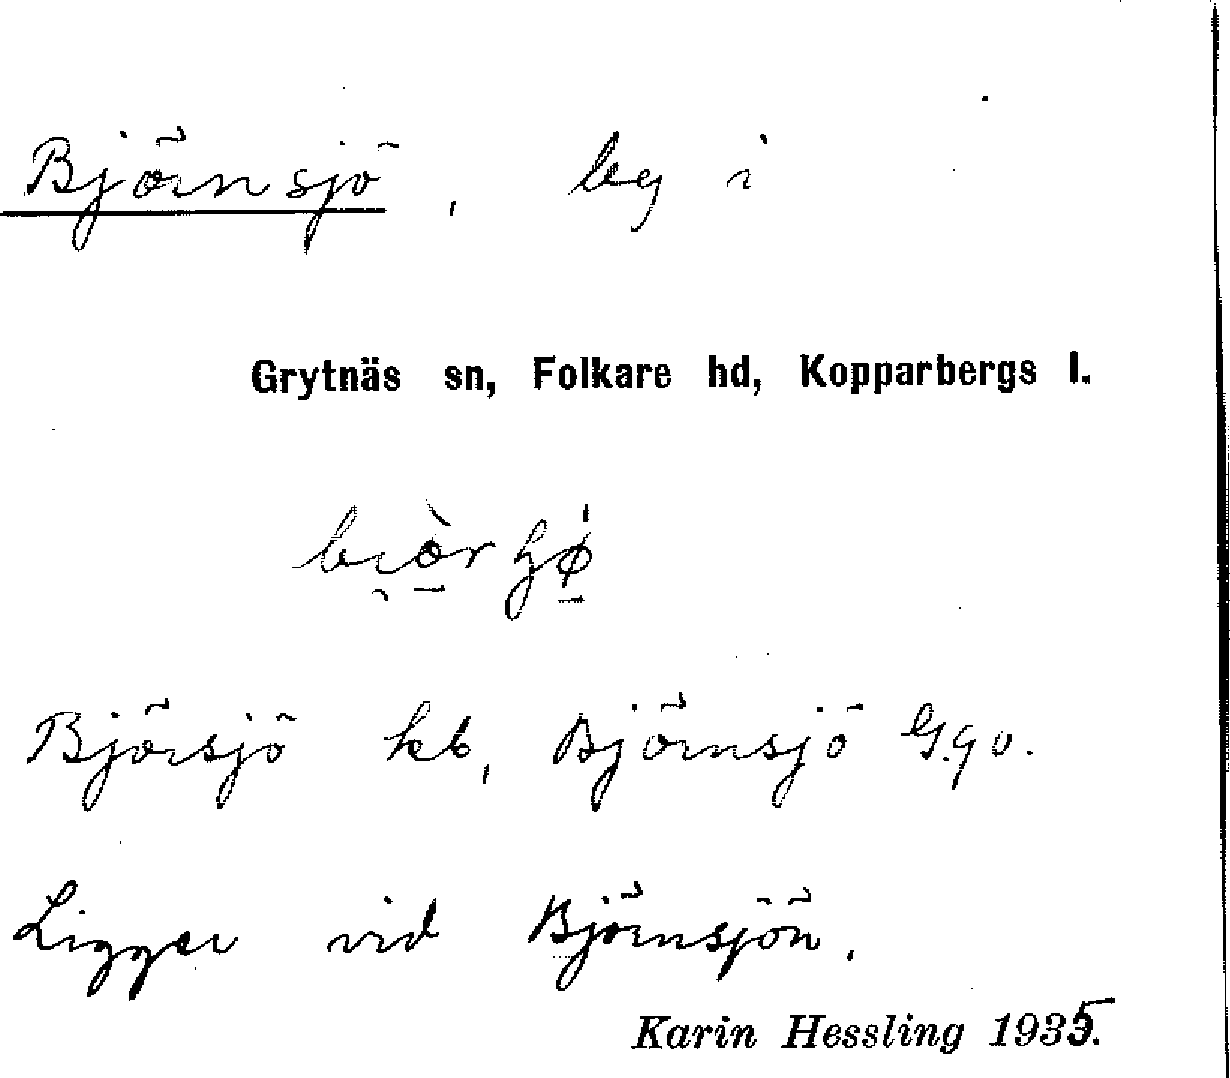 Björnsjö, by i
Grytnäs sn, Folkare hd, Kopparbergs l.
Björsjö kb, Björnsjö G.go.
Ligger vid Björnsjön.
Karin Hessling 1935.